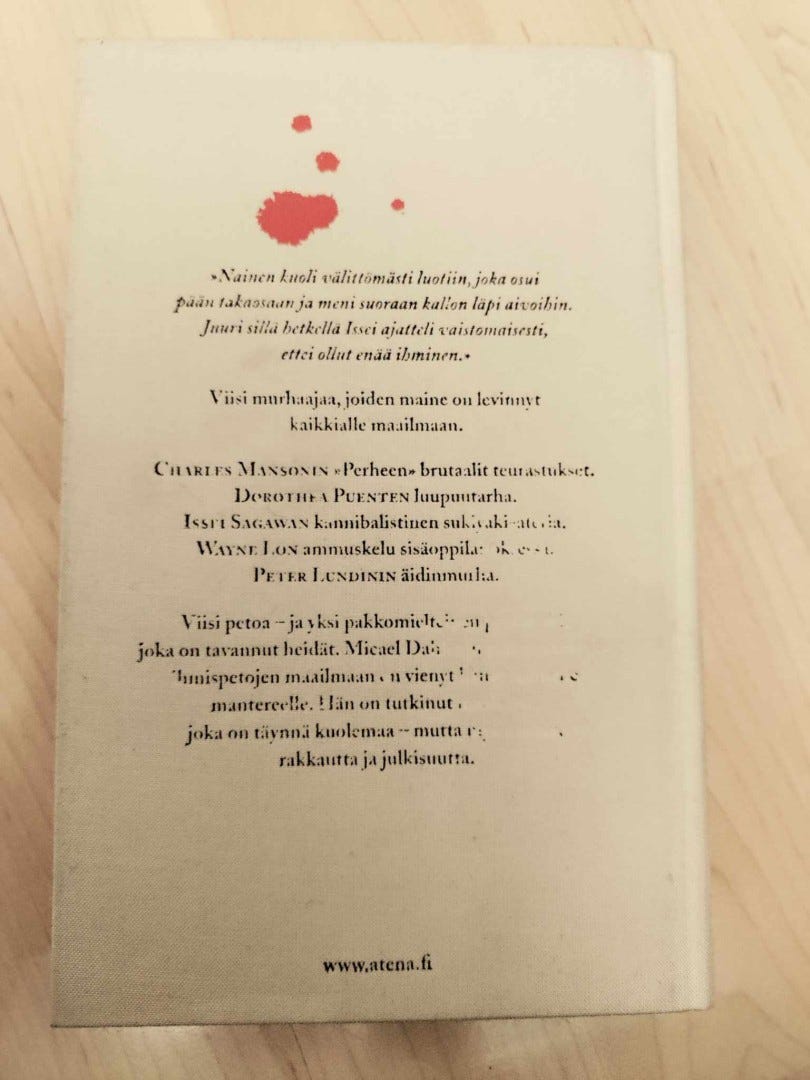 »Nainen kuoli välittömästi luotiin, joka osui
pään takaosaan ja meni suoraan kallon läpi aivoihin.
Juuri sillä hetkellä Issei ajatteli vaistomaisesti,
ettei ollut enää ihminen.»
Viisi murhaajaa, joiden maine on levinnyt
kaikkialle maailmaan.
CHARLES MANSONIN »Perheen» brutaalit teurastukset.
DOROTHEA PUENTEN luupuutarha.
ISSEI SAGAWAN kannibalistinen
WAYNE LON ammuskelu
PETER LUNDININ äidinmurha.
Viisi petoa – ja yksi
joka on tavannut heidät. Micael
vienyt
mantereelle. Hän on tutkinut
joka on täynnä kuolemaa – mutta
rakkautta ja julkisuutta.
www.atena.fi